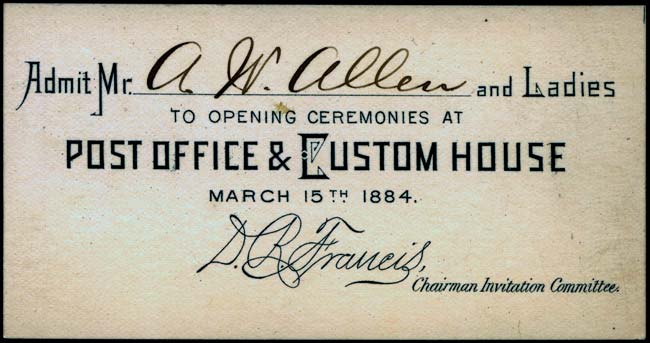 Admit Mr. A. W. Allen and Ladies
TO OPENING CEREMONIES AT
POST OFFICE & CUSTOM HOUSE
MARCH 15TH 1884.
D. R. Francis,
Chairman Invitation Committee.